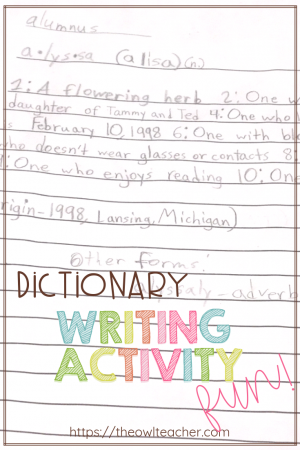 alumnus
a•lys•sa (alisa)(n)
1: A flowering herb 2: One w
daughter of Tammy and Ted 4: One who
s February 10, 1998 6: One with bl
who doesn't wear glasses or contacts 8:
: One who enjoys reading 10: One
rigin-1998, Lansing, Michigan)
Other forms:
DICTIONARY
aly-adverb
WRITING
ACTIVITY
fun!
https://theowlteacher.com